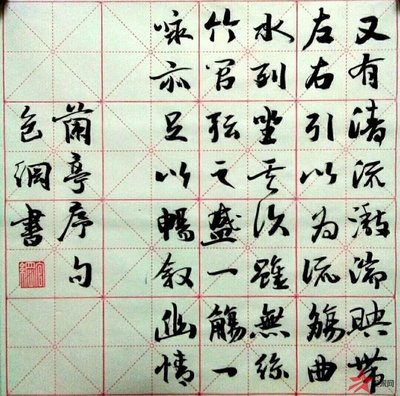 又有清流激湍映帶
左右引以為流觴曲
水列坐其次雖無絲
竹管弦之盛一觴一
咏亦足以暢叙幽情
蘭亭序句
書